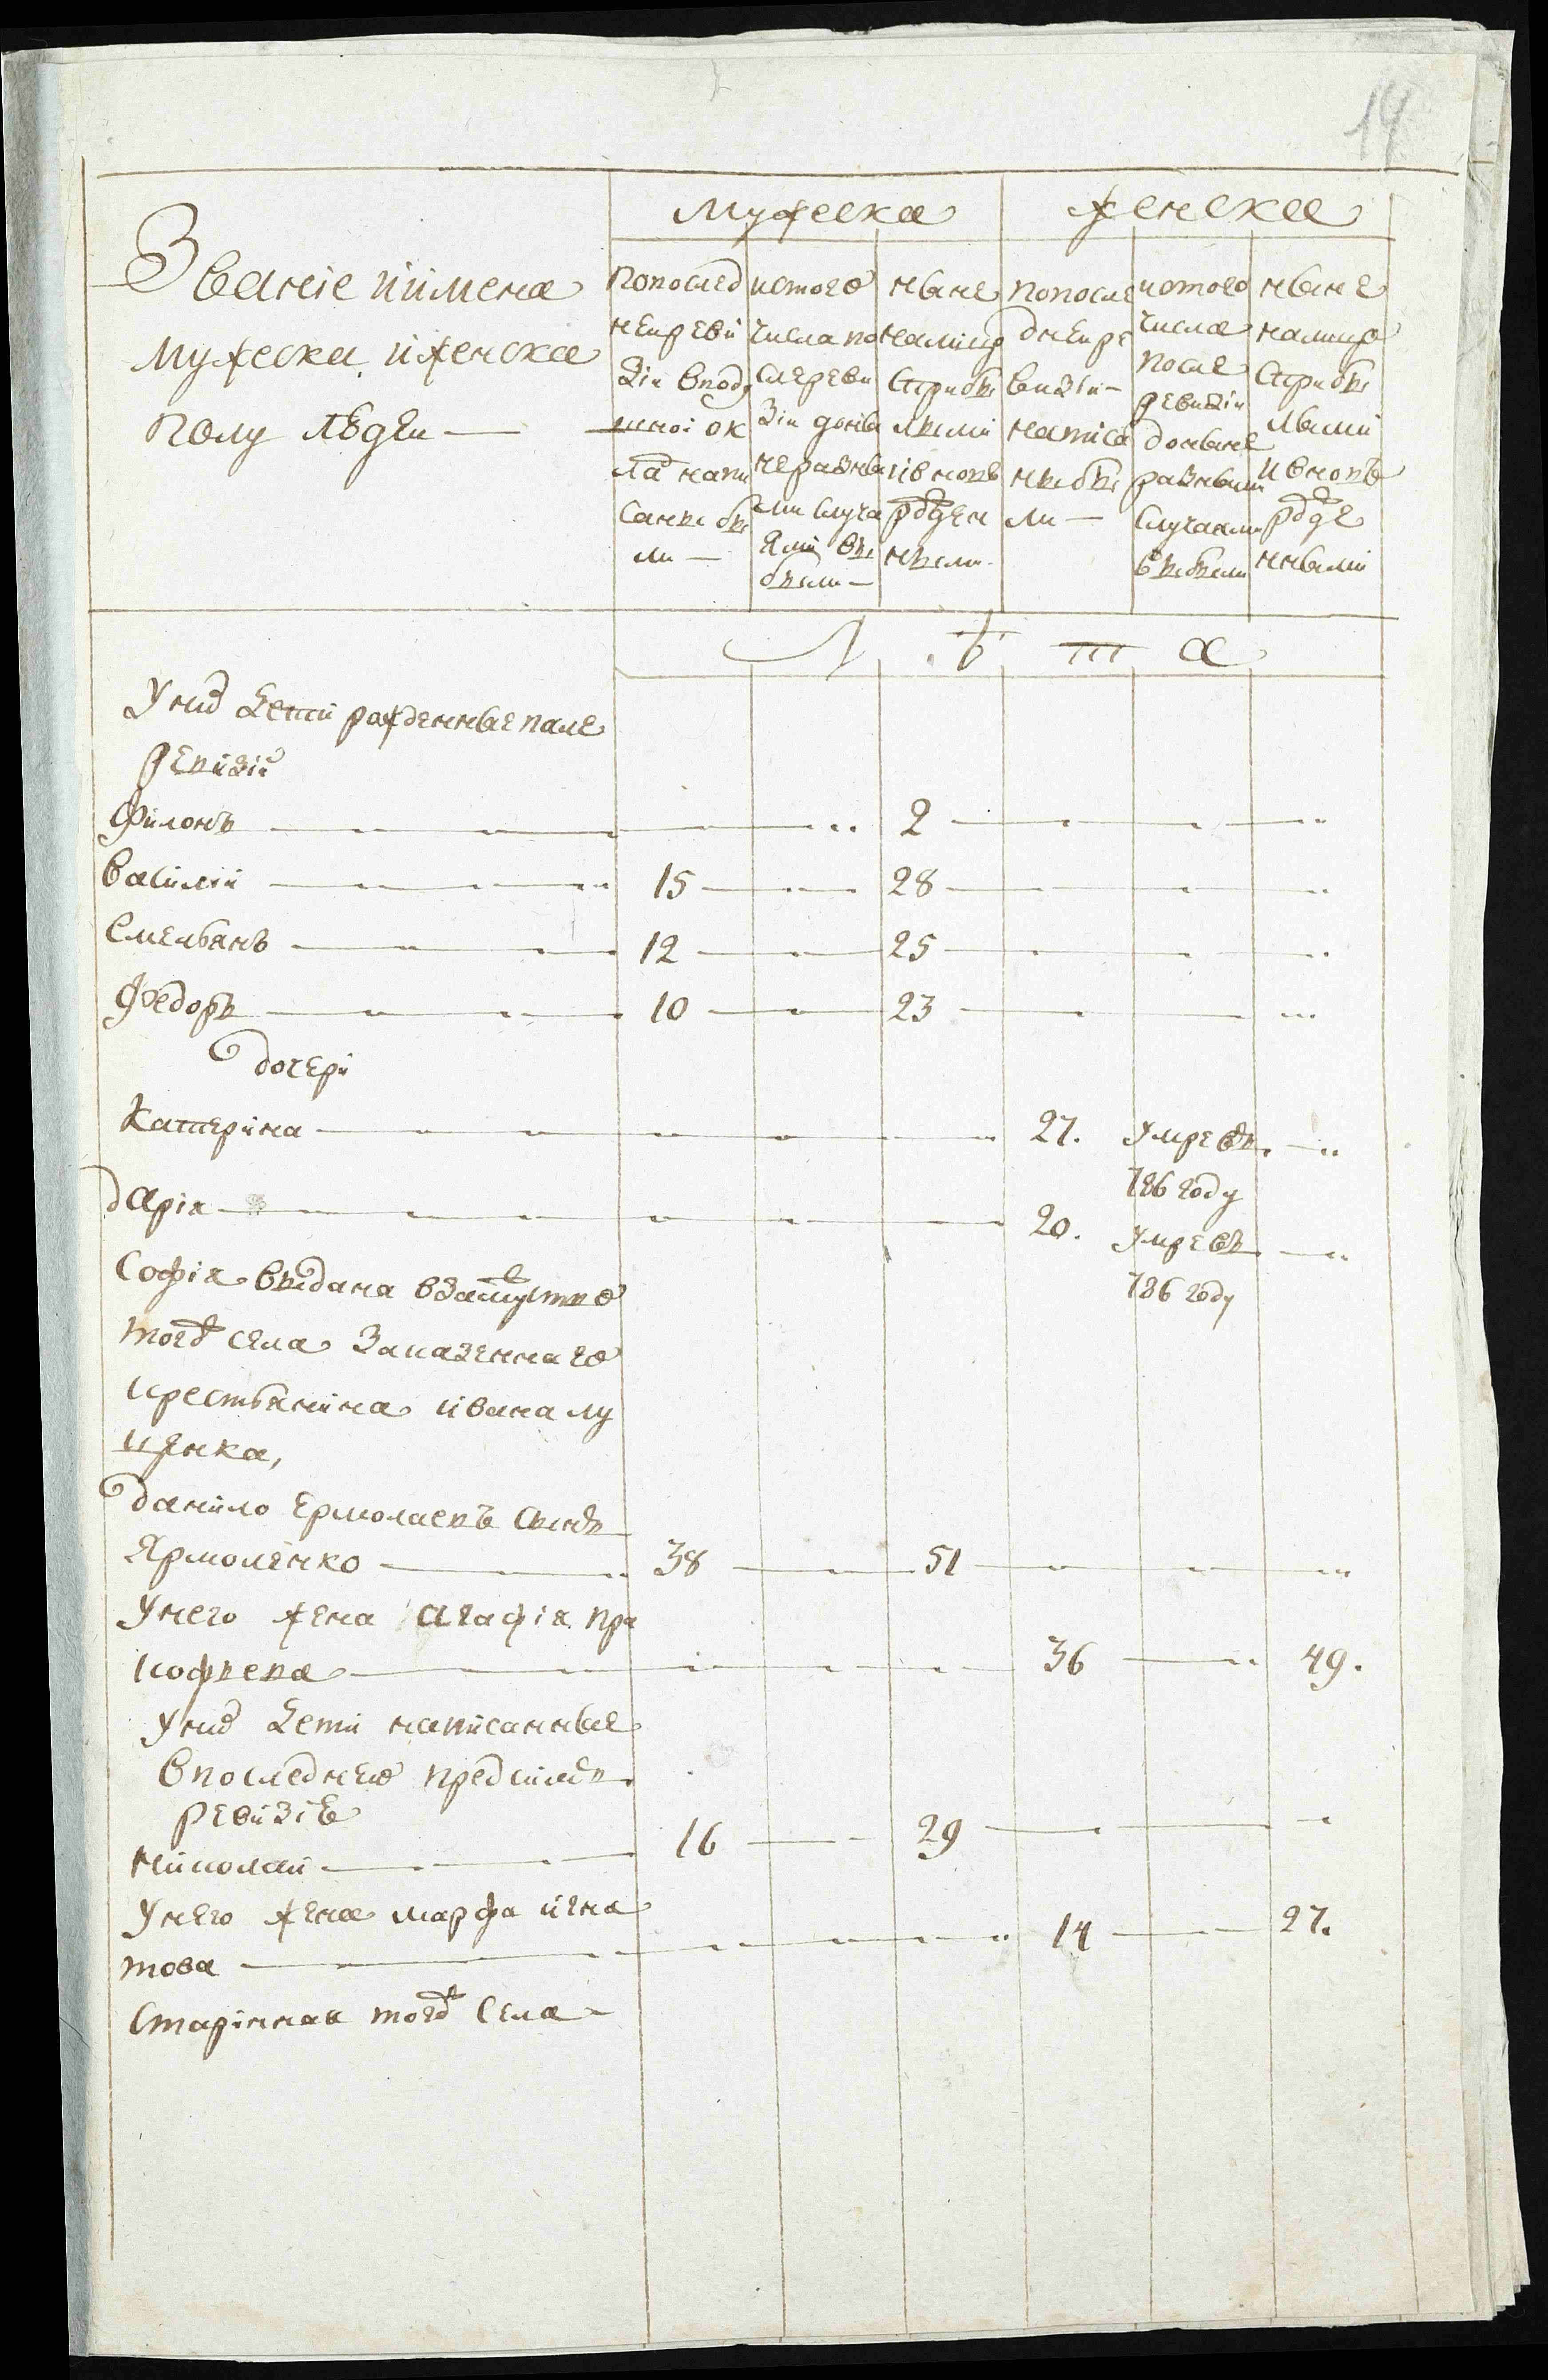 19
Званіе иимена
мужеска иженска
полу людеи —
мужеска
женска
попослед
неиреви
зіи вподу
шнои ок
ла напи
саны бы
ли —
истого
числа по
слереви
зіи доны
неразны
ми случа
ями вы
были —
ныне
налицо
сприбы
лыми
ивновь
рожден
ными
попосле
днеире
визіи —
написа
ны бы
ли —
истого
числа
после
ревизіи
доныне
разными
случаями
выбыли
ныне
налицо
сприбы
лыми
ивновь
рожде
нными
Л ѣ т а
Уних дети рожденные после
ревизіи
Филонъ 2
Василіи 15 28
Емельянъ 12 25
Федоръ 10 23
дочери
Катерина 27. умре въ
786 году
дарія 20. умре въ
786 году
Софія выдана взамужство
того села заказенного
крестьянина ивана лу
ценка,
данило Ермолаевъ сынъ
Ярмоленко 38 51
Унего жена агафія про
кофьева 36 49.
Уних дети написанные
впоследнею пред симъ
ревизіѣ
николаи 16 29
Унего жена марфа игна
това 14 27.
Старинная того села